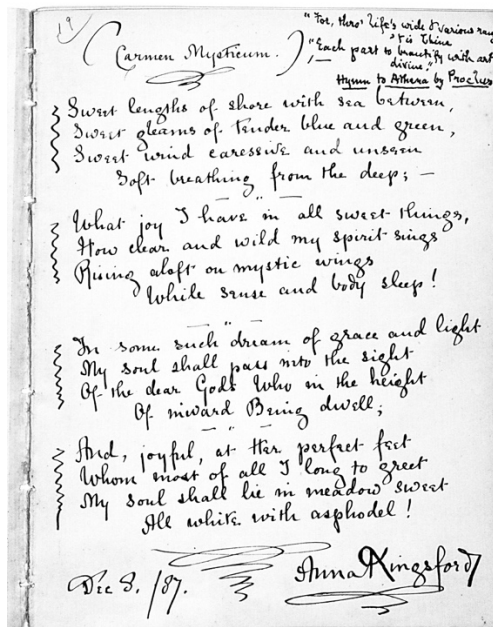 19
"For, thro' life's wide & various range
'tis Thine
"Each part to beautify with art
divine."
Hymn to Athena by Proclus
(Carmen Mysticum.)
Sweet lengths of shore with sea between,
Sweet gleams of tender blue and green,
Sweet wind caressive and unseen
Soft breathing from the deep; —
What joy I have in all sweet things,
How clear and wild my spirit sings
Rising aloft on mystic wings
While sense and body sleep!
In some such dream of grace and light
My soul shall pass into the sight
Of the dear Gods Who in the height
Of inward Being dwell;
And, joyful, at Her perfect feet
Whom most of all I long to greet
My soul shall lie in meadow sweet
All white with asphodel!
Anna Kingsford
Dec 8. /87.